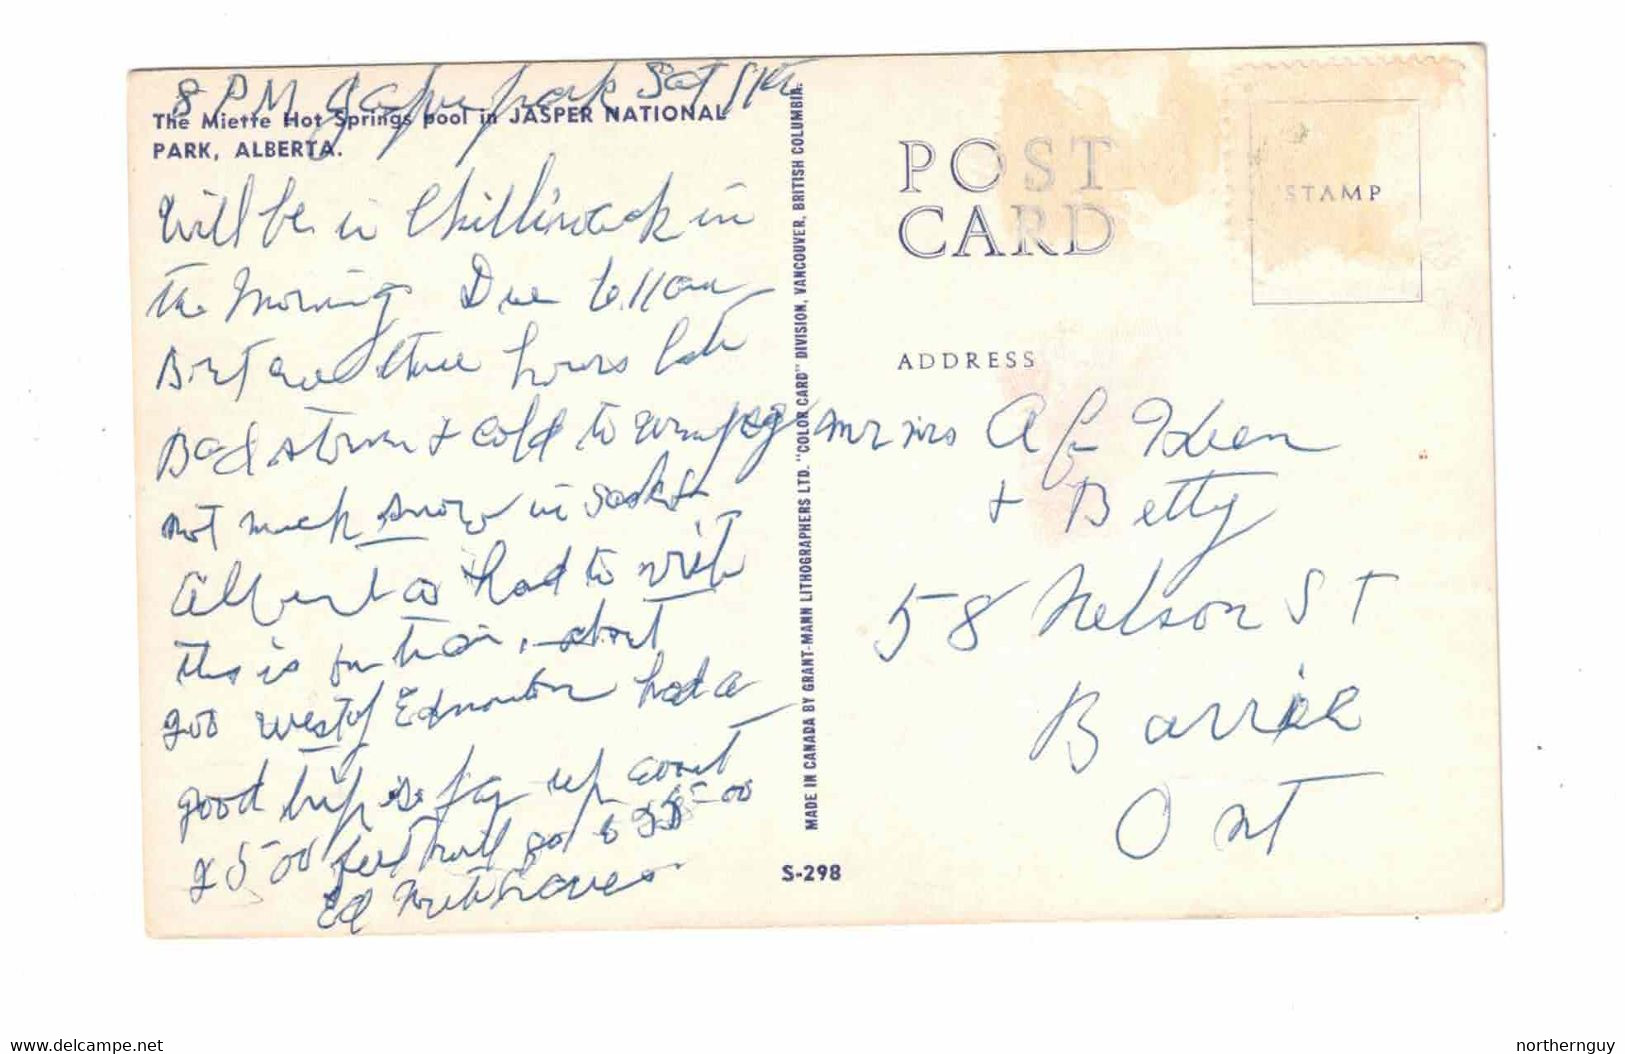 8 PM Jasper park Sat
The Miette Hot Springs pool in JASPER NATIONAL
PARK, ALBERTA.
Will be in Chilliwack in
the morning Due 6.11 am
But are three hours late
Bad storm & cold to winnipeg
not much snow in Sask &
Alberta had to write
this is on train, about
200 west of Edmonton had a
good trip so far up about
2500 feet will go to
Ed
MADE IN CANADA BY GRANT-MANN LITHOGRAPHERS LTD. "COLOR CARD" DIVISION, VANCOUVER, BRITISH COLUMBIA.
S-298
POST
CARD
STAMP
ADDRESS
Mr mrs A
& Betty
58 Nelson ST
Barrie
Ont
www.delcampe.net
northernguy